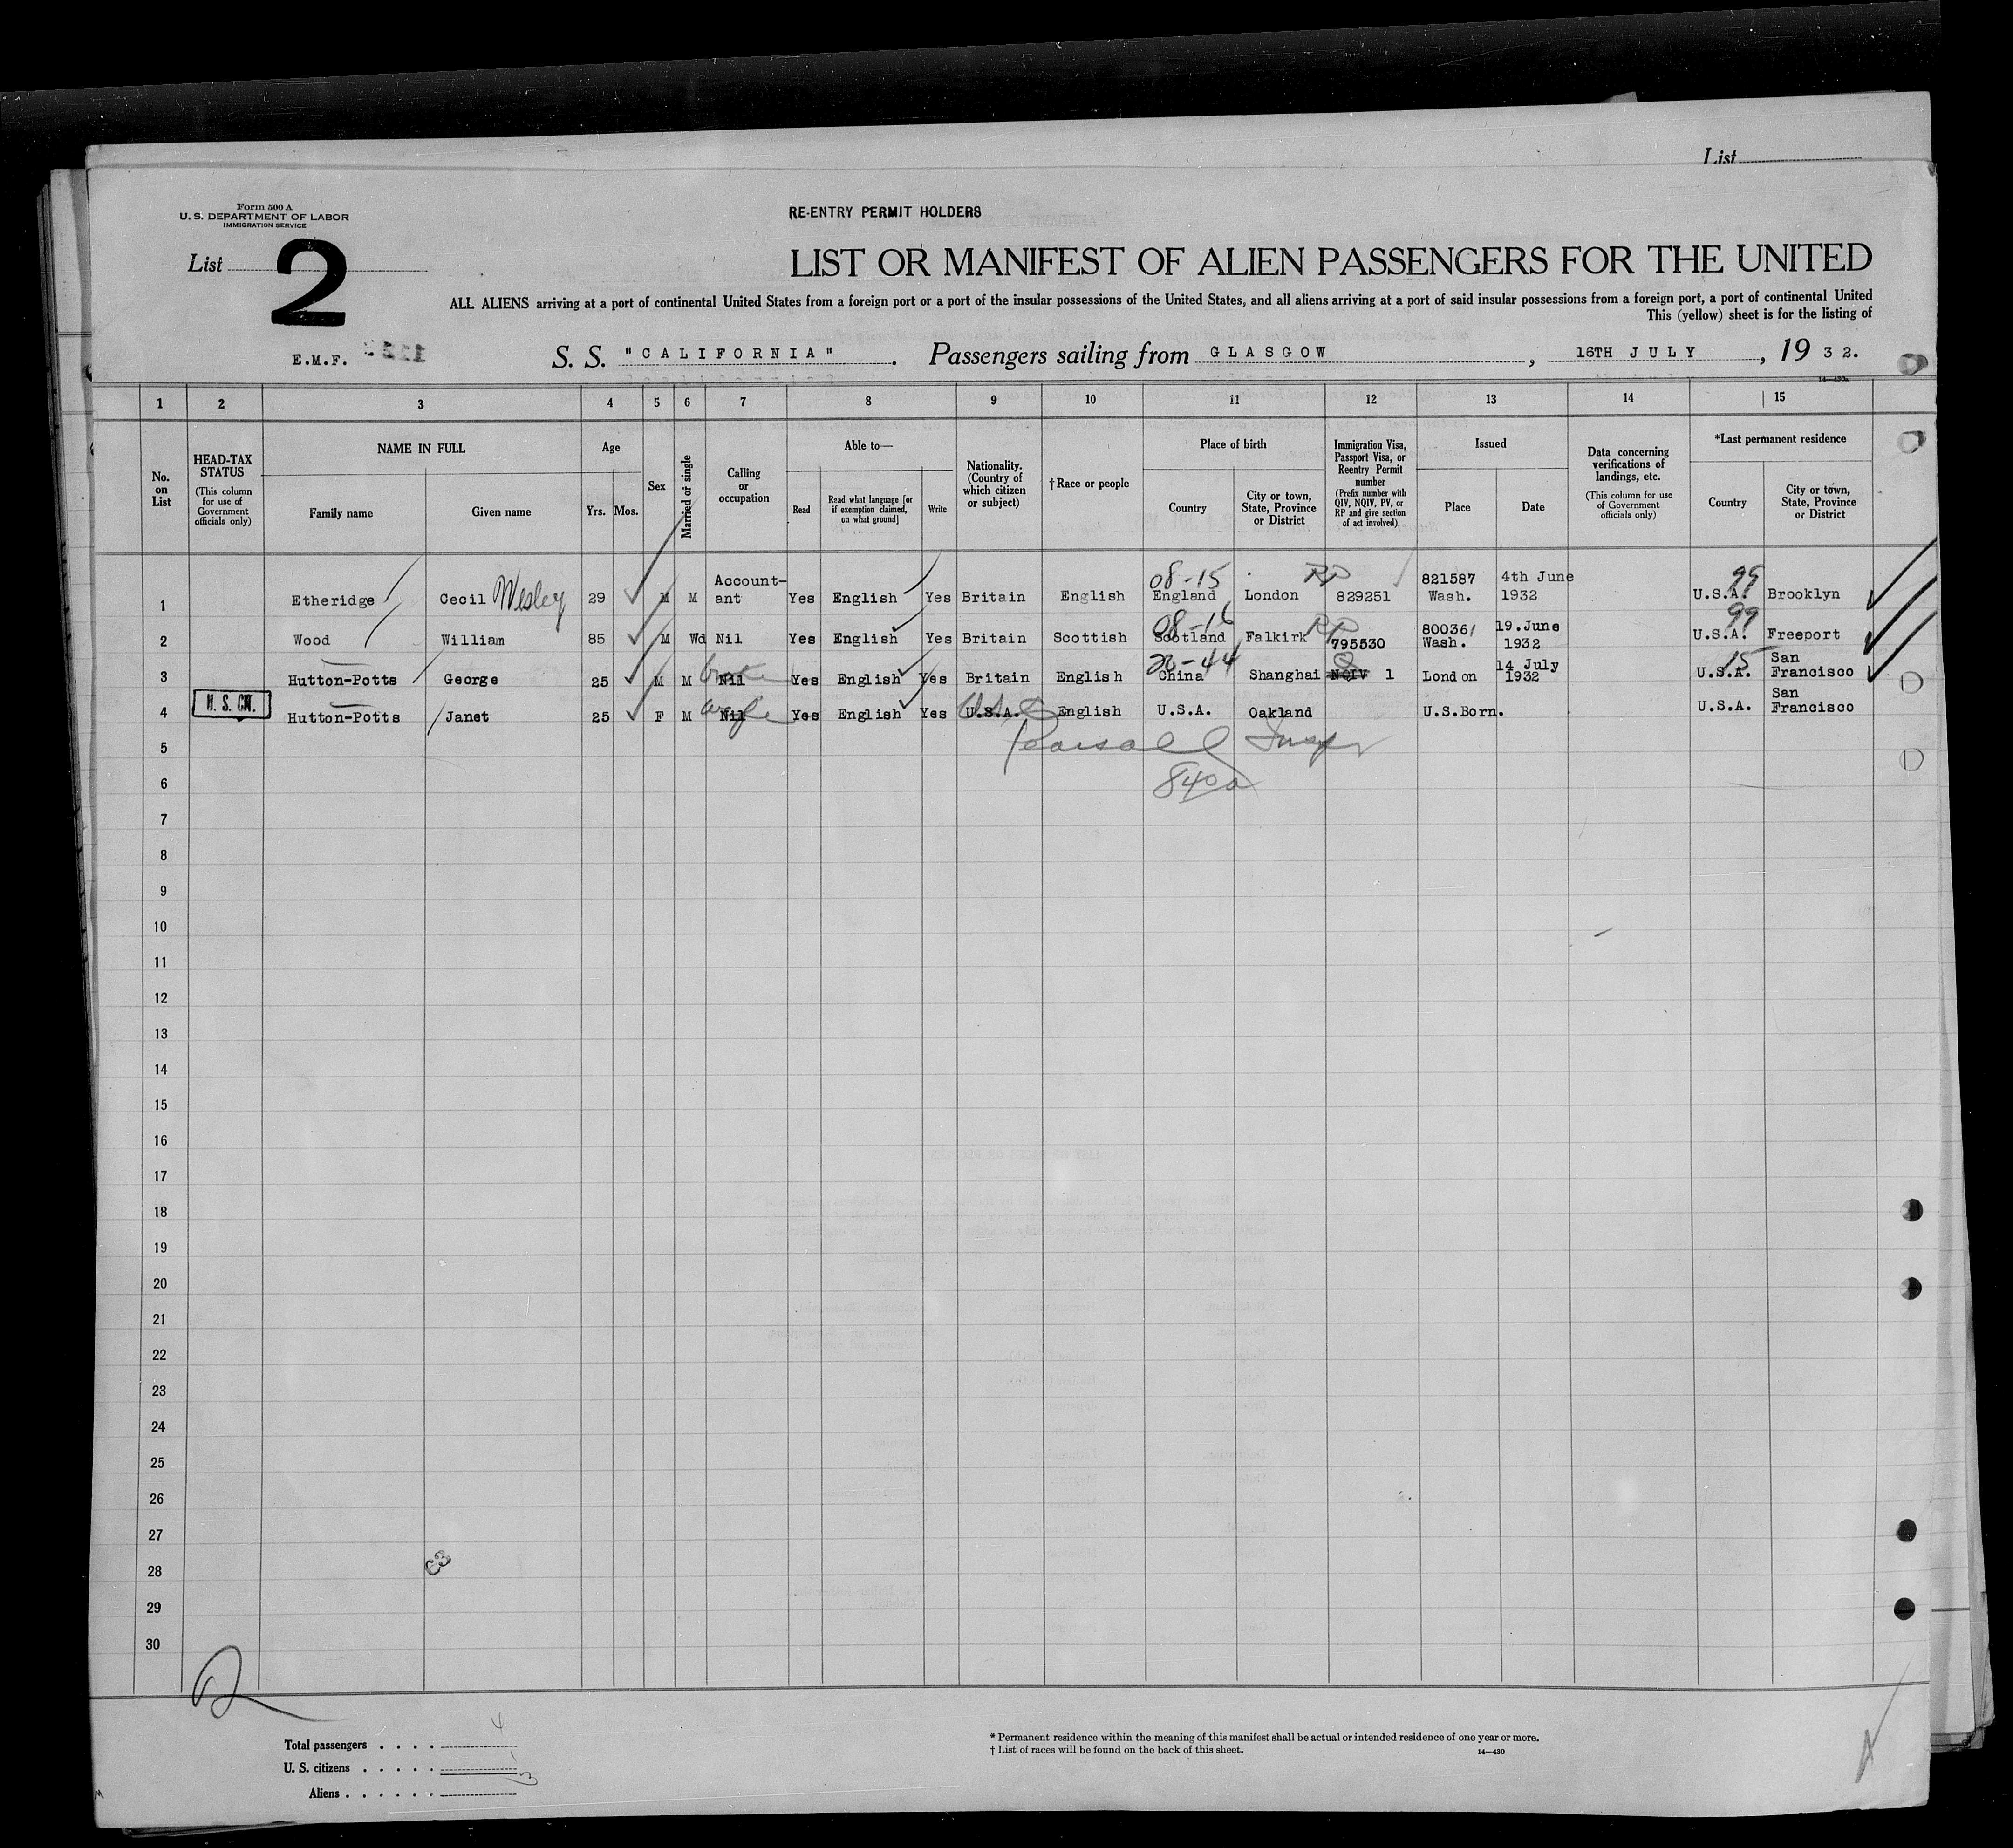 List
Form 500 A
U. S. DEPARTMENT OF LABOR
IMMIGRATION SERVICE
RE-ENTRY PERMIT HOLDERS
List 2
LIST OR MANIFEST OF ALIEN PASSENGERS FOR THE UNITED
ALL ALIENS arriving at a port of continental United States from a foreign port or a port of the insular possessions of the United States, and all aliens arriving at a port of said insular possessions from a foreign port, a port of continental United
This (yellow) sheet is for the listing of
E.M.F. S. S. "CALIFORNIA". Passengers sailing from GLASGOW, 16TH JULY, 1932.
14—430a
1 2 3 4 5 6 7 8 9 10 11 12 13 14 15
No. on List
HEAD-TAX STATUS
(This column for use of Government officials only)
NAME IN FULL
Family name
Given name
Age
Yrs. Mos.
Sex
Married or single
Calling or occupation
Able to—
Read
Read what language [or if exemption claimed, on what ground]
Write
Nationality. (Country of which citizen or subject)
† Race or people
Place of birth
Country
City or town, State, Province or District
Immigration Visa, Passport Visa, or Reentry Permit number
(Prefix number with QIV, NQIV, PV, or RP and give section of act involved)
Issued
Place
Date
Data concerning verifications of landings, etc.
(This column for use of Government officials only)
*Last permanent residence
Country
City or town, State, Province or District
1 Etheridge Cecil Wesley 29 M M Accountant Yes English Yes Britain English 08-15 England London RP 829251 821587 Wash. 4th June 1932 99 U.S.A. Brooklyn
2 Wood William 85 M Wd Nil Yes English Yes Britain Scottish 08-16 Scotland Falkirk RP 795530 80036/ Wash. 19.June 1932 99 U.S.A. Freeport
3 Hutton-Potts George 25 M M Nil Yes English Yes Britain English 20-44 China Shanghai NQIV 1 London 14 July 1932 15 U.S.A. San Francisco
H. S. CW.
4 Hutton-Potts Janet 25 F M Nil wife Yes English Yes U.S.A. English U.S.A. Oakland U.S.Born. U.S.A. San Francisco
5 Pearsall Insp
6 840a
7
8
9
10
11
12
13
14
15
16
17
18
19
20
21
22
23
24
25
26
27
28
29
30
Total passengers . . . . 4
U. S. citizens . . . . . 1
Aliens . . . . . . 3
* Permanent residence within the meaning of this manifest shall be actual or intended residence of one year or more.
† List of races will be found on the back of this sheet.
14—430